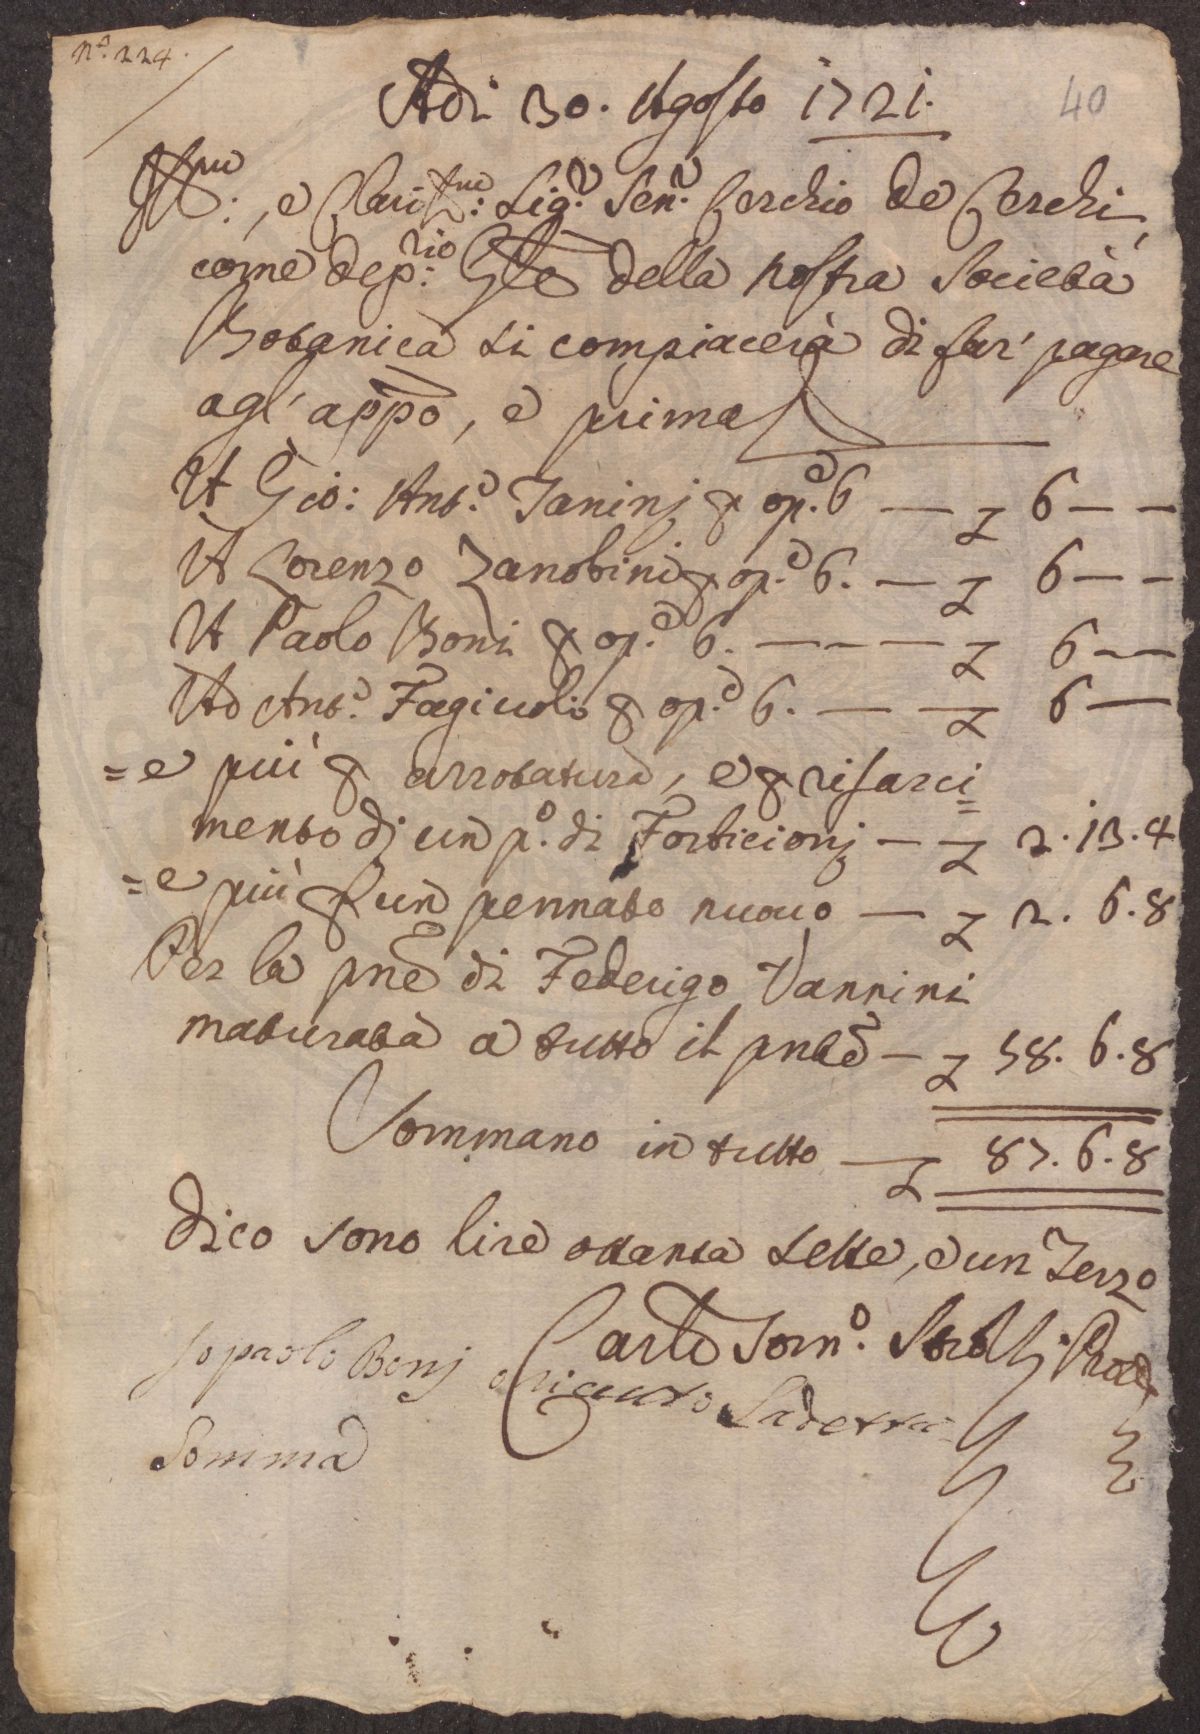 N.º 224.
Adi 30. Agosto 1721.
40
Ill.mo:, e Clariss.mo: Sig.r Sen.r Cerchio de Cerchi,
come dep.rio: Gle della nostra Società
Botanica si compiacerà di far' pagare
agl' appo, e prima
A Gio: Ant.o Janinj p op.e 6 — £ 6 — —
A Lorenzo Zanobini p op.e 6. — £ 6 — —
A Paolo Boni p op.e 6. — — — £ 6 — —
Ad Ant.o Fagiuoli p op.e 6. — — £ 6 —
= e più p arrotatura, e p risarci=
mento dj un p.o di Forbicionj — £ 2.13.4
= e più p un pennato nuouo — £ 2. 6.8
Per la pne di Federigo Vannini
maturata a tutto il pnte — £ 58. 6.8
Sommano in tutto — £ 87.6.8
dico sono lire ottanta sette, e un Terzo
Carlo Tom.o Strozzi Prod.e
Jo paolo Bonj o riceuto La detta
Somma